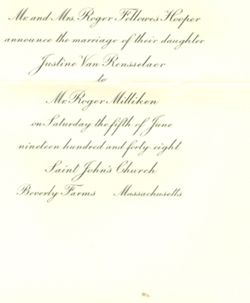 Mr. and Mrs. Roger Fellowes Hooper
announce the marriage of their daughter
Justine Van Rensselaer
to
Mr. Roger Milliken
on Saturday the fifth of June
nineteen hundred and forty-eight
Saint John's Church
Beverly Farms Massachusetts